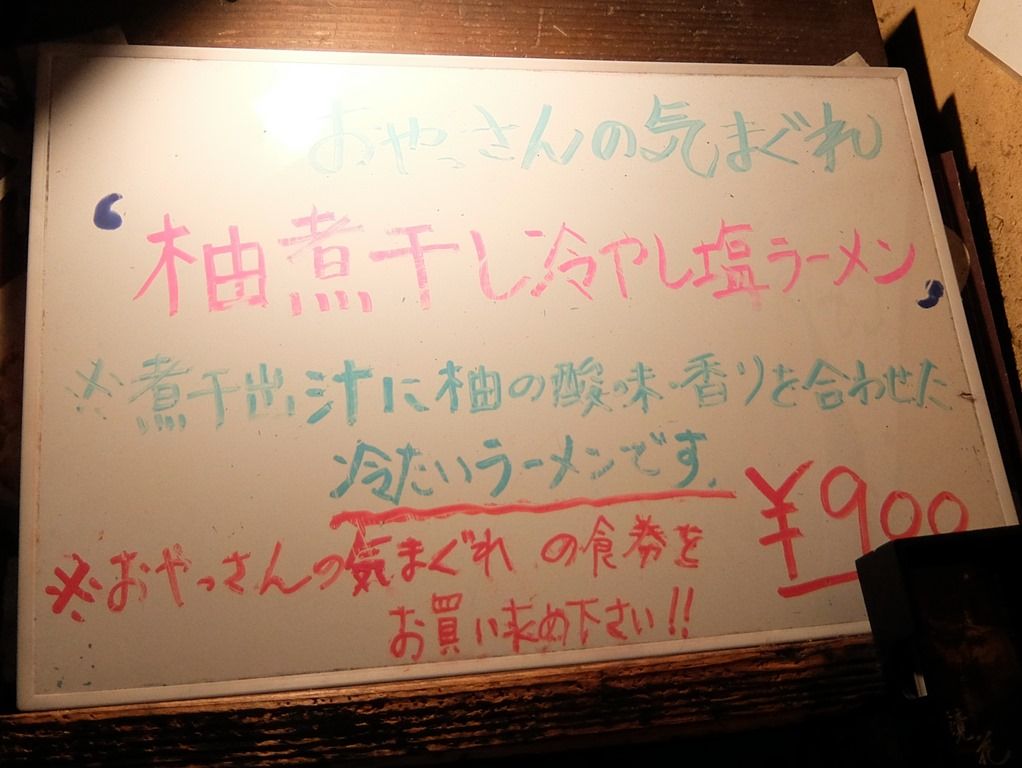 おやっさんの気まぐれ
“柚煮干し冷やし塩ラーメン„
※煮干出汁に柚の酸味・香りを合わせた
冷たいラーメンです.
¥900
※おやっさんの気まぐれの食券を
お買い求め下さい!!